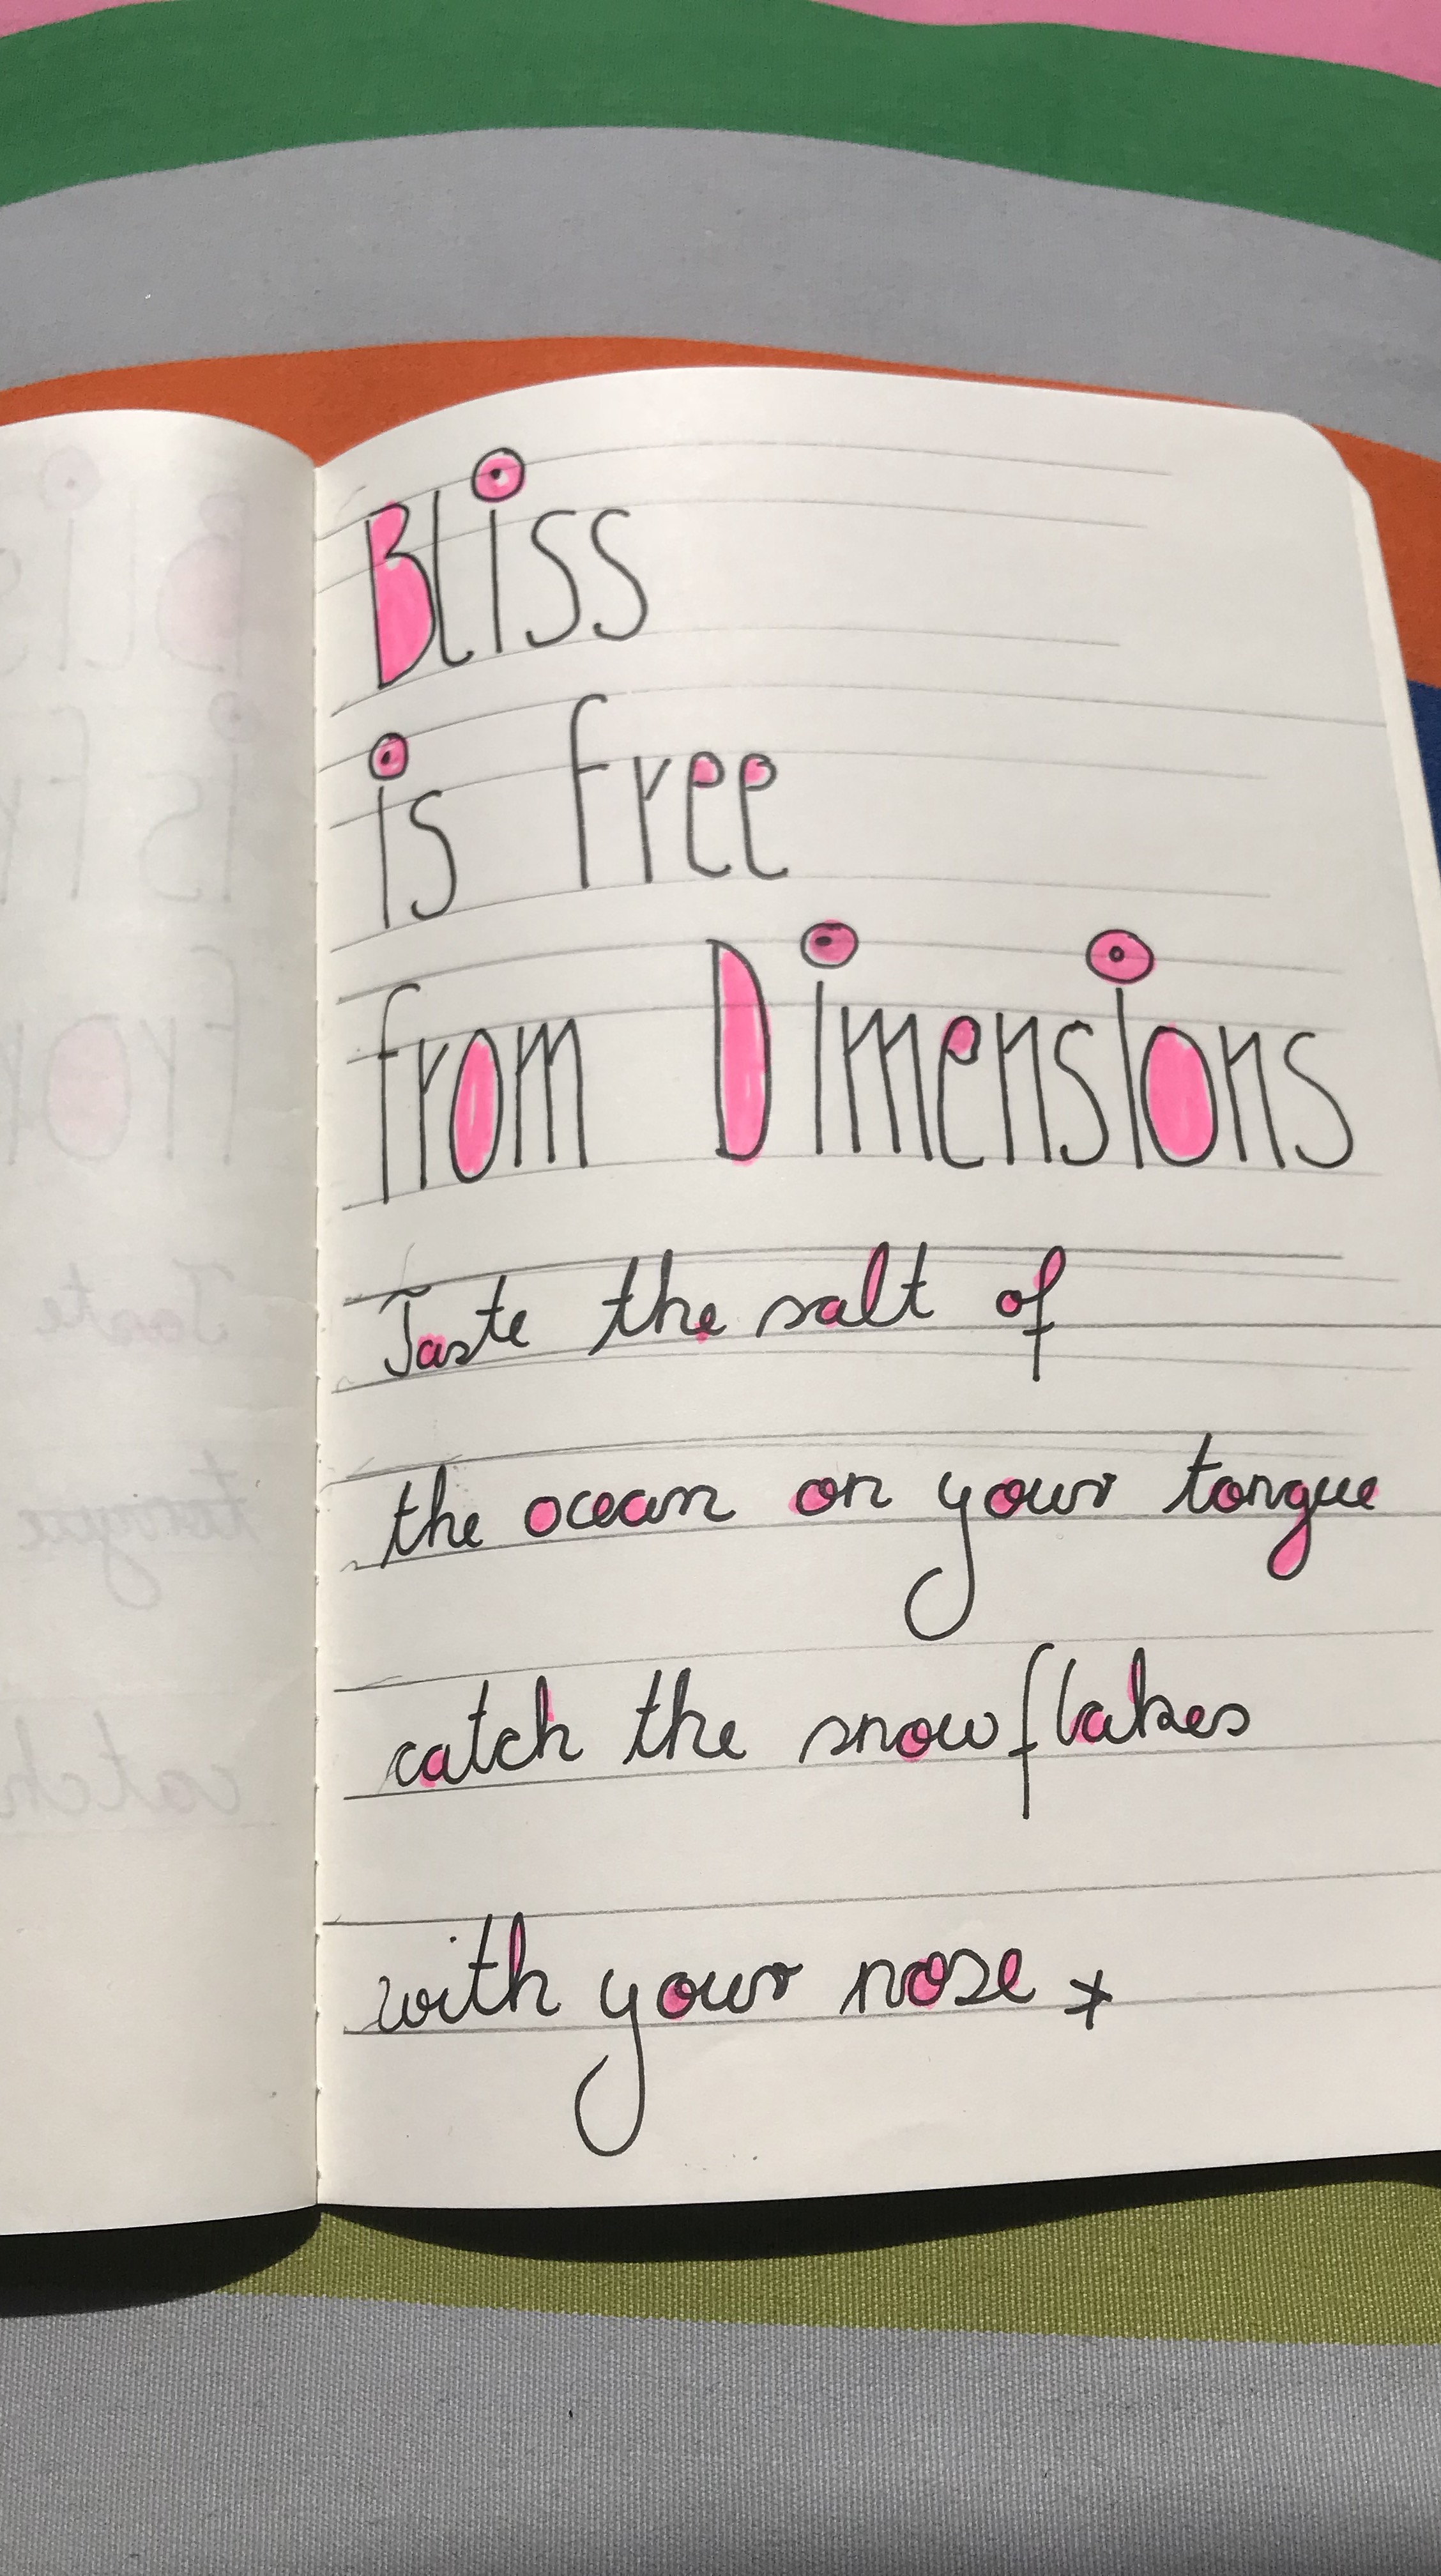 Bliss
is free
from Dimensions
Taste the salt of
the ocean on your tongue
catch the snowflakes
with your nose *